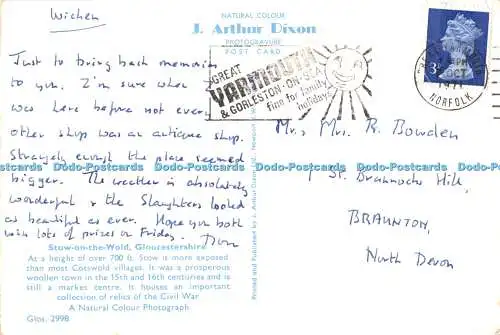 Wichen
NATURAL COLOUR
J. Arthur Dixon
PHOTOGRAVURE
POST CARD
Just to bring back memories
to you. I'm sure when I
was here before not every
other shop was an antique shop.
Strangely enough the place seemed
bigger. The weather is absolutely
wonderful & the Slaughters looked
as beautiful as ever. Hope you both
win lots of prizes on Friday.
GREAT
YARMOUTH
& GORLESTON-ON-SEA
Fine for family
holidays
PM
OCT
1971
NORFOLK
3
Mr & Mrs R. Bowden
1 St. Brannocks Hill,
BRAUNTON,
North Devon
Dodo-Postcards Dodo-Postcards Dodo-Postcards Dodo-Postcards
Printed and Published by J. Arthur Dixon Ltd., Newport
Stow-on-the-Wold, Gloucestershire
At a height of over 700 ft. Stow is more exposed
than most Cotswold villages. It was a prosperous
woollen town in the 15th and 16th centuries and is
still a market centre. It houses an important
collection of relics of the Civil War
A Natural Colour Photograph
Glos. 2998